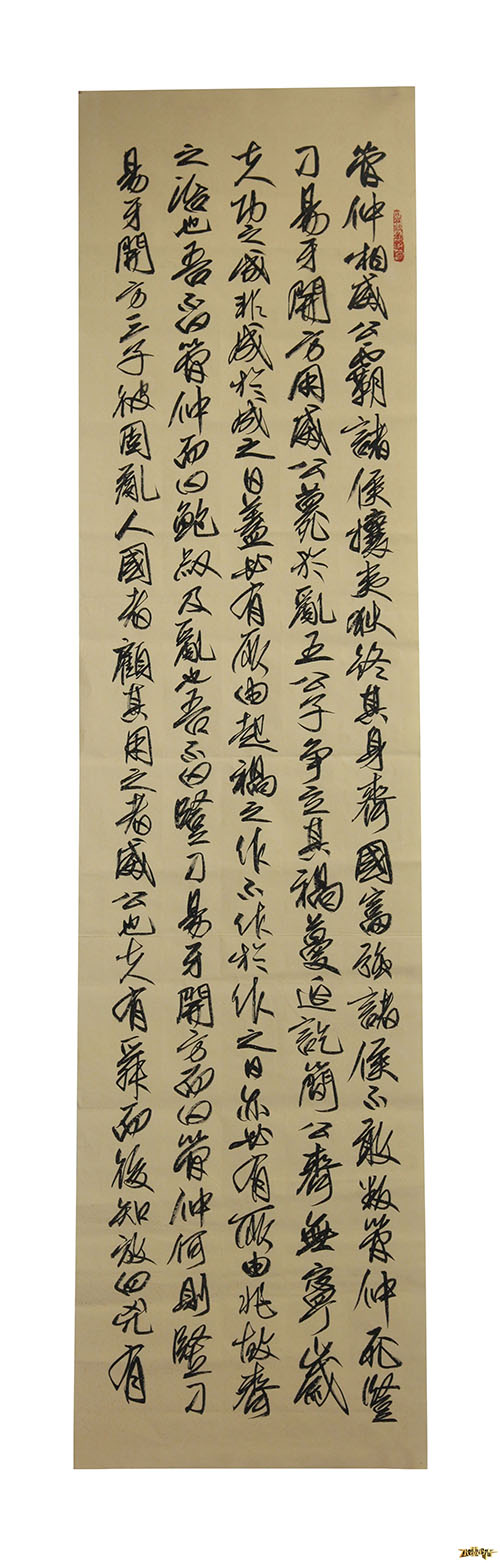 管仲相威公霸諸侯攘夷狄終其身齊國富強諸侯不敢叛管仲死豎
刁易牙開方用威公薨於亂五公子爭立其禍蔓延訖簡公齊無寧歲
夫功之成非成於成之日蓋必有所由起禍之作不作於作之日亦必有所由兆故齊
之治也吾不曰管仲而曰鮑叔及亂也吾不曰豎刁易牙開方而曰管仲何則豎刁
易牙開方三子彼固亂人國者顧其用之者威公也夫有舜而後知放四兇有